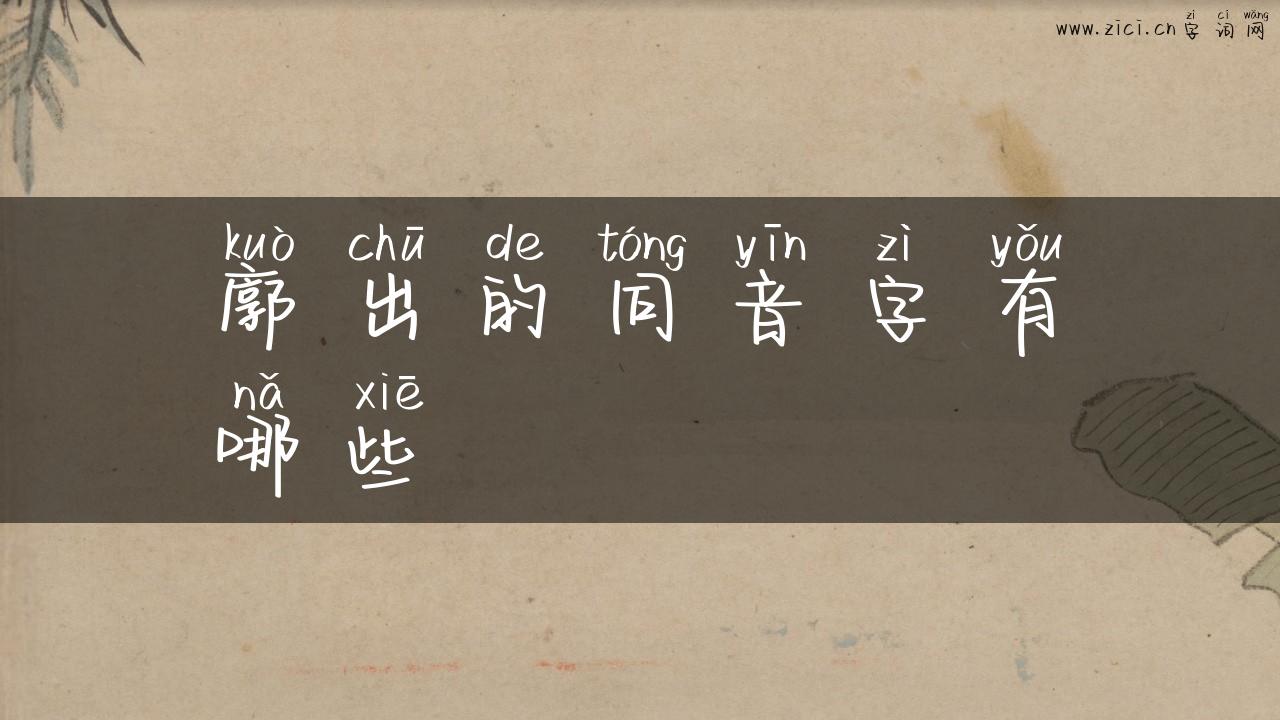 zì cí wǎng
www.zici.cn 字词网
kuò chū de tóng yīn zì yǒu
廓出的同音字有
nǎ xiē
哪些